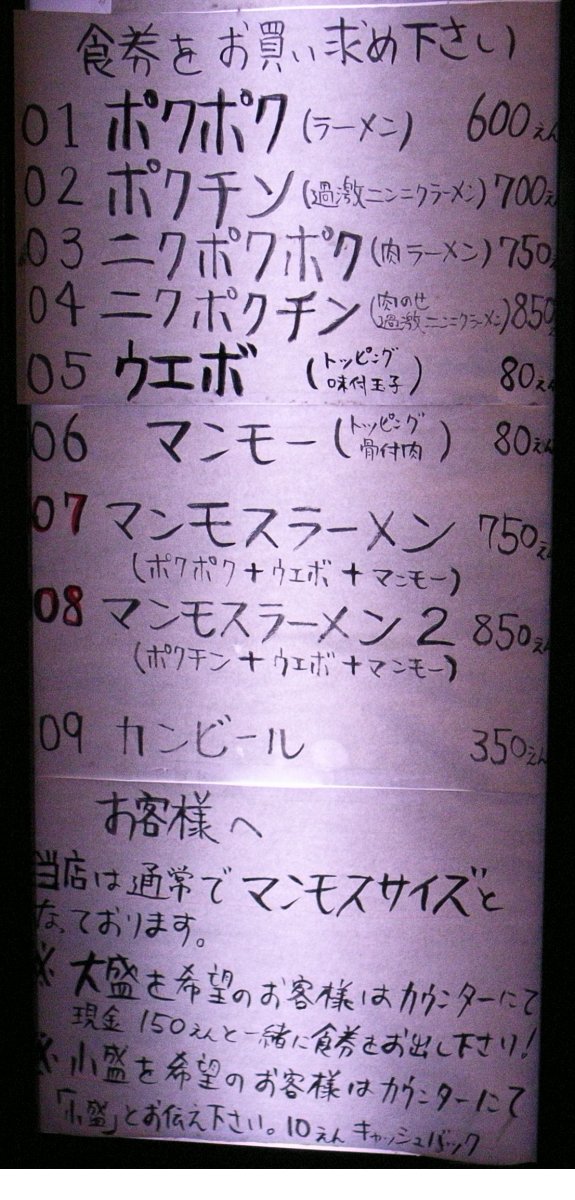 食券をお買い求め下さい
01 ポクポク (ラーメン) 600えん
02 ポクチン (過激ニンニクラーメン) 700えん
03 ニクポクポク (肉ラーメン) 750えん
04 ニクポクチン (肉のせ 過激ニンニクラーメン) 850
05 ウエボ (トッピング 味付玉子) 80えん
06 マンモー (トッピング 骨付肉) 80えん
07 マンモスラーメン 750えん
(ポクポク+ウエボ+マンモー)
08 マンモスラーメン2 850えん
(ポクチン+ウエボ+マンモー)
09 カンビール 350えん
お客様へ
当店は通常でマンモスサイズと
なっております。
※大盛を希望のお客様はカウンターにて
現金150えんと一緒に食券をお出し下さい!
※小盛を希望のお客様はカウンターにて
「小盛」とお伝え下さい。10えんキャッシュバック